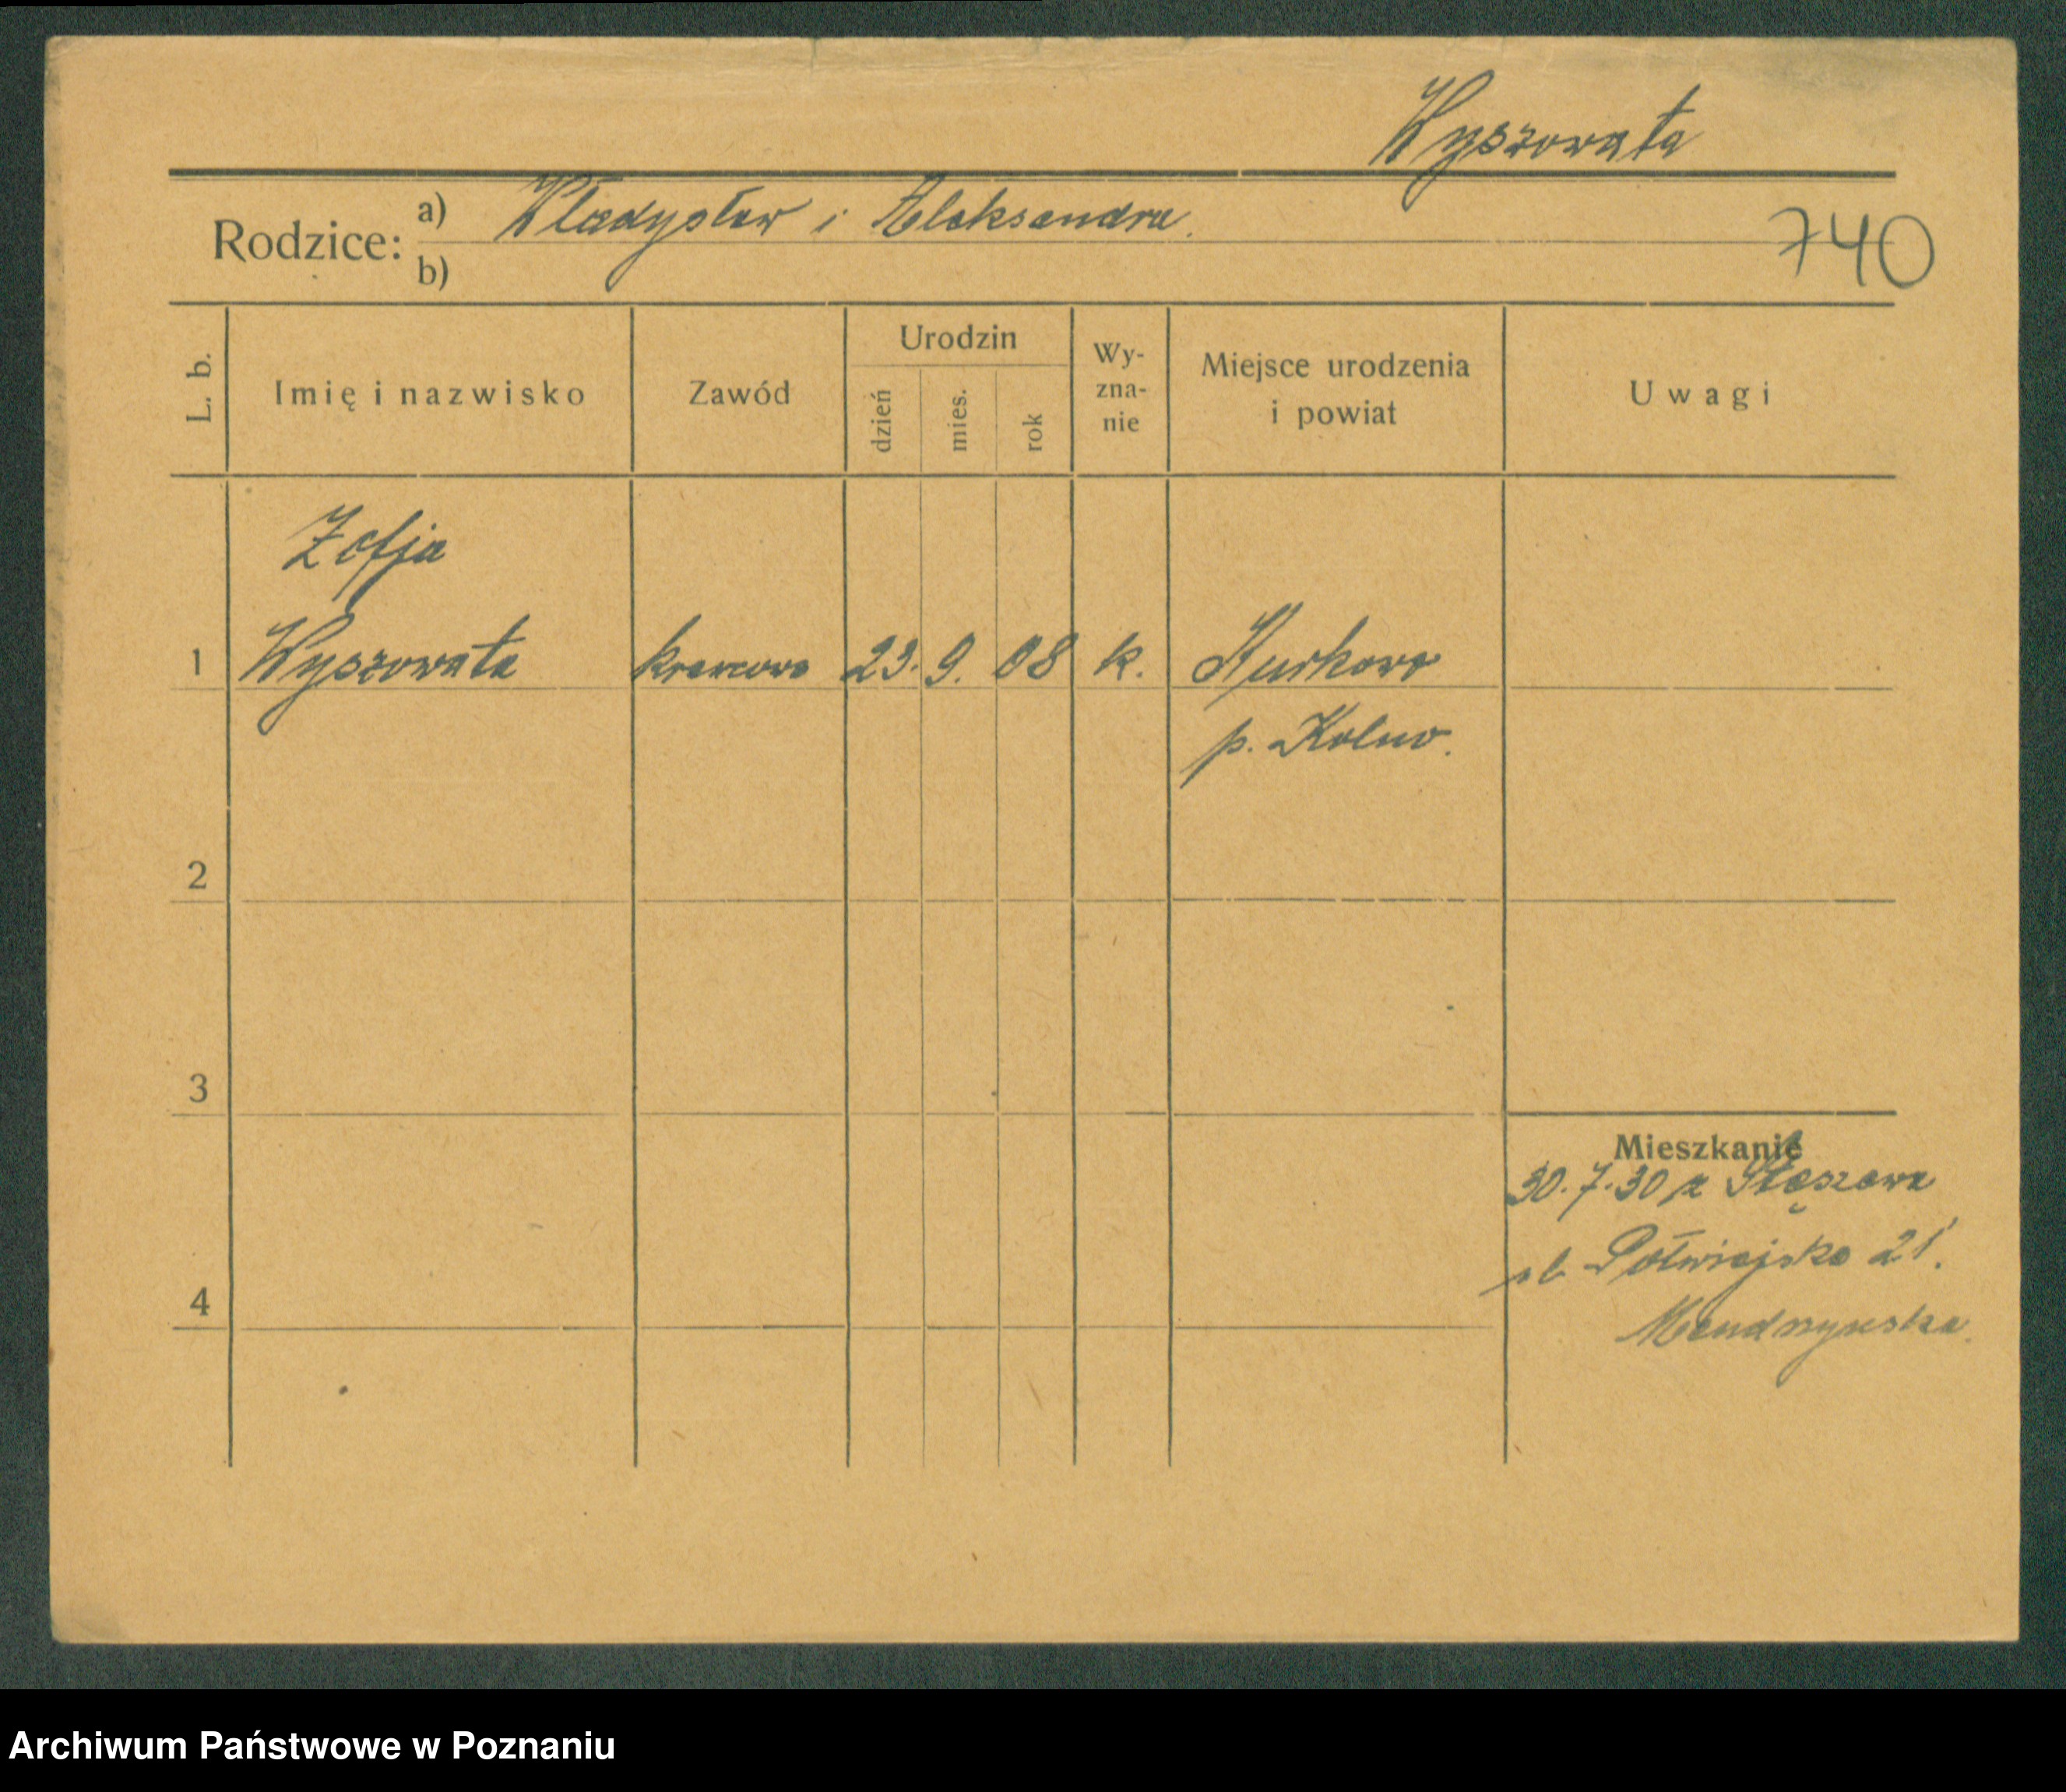 Wyszowata
Rodzice: a) Władysław i Aleksandra.
b)
740
L. b. Imię i nazwisko Zawód Urodzin dzień mies. rok Wy-zna-nie Miejsce urodzenia i powiat Uwagi
Zofja
1 Wyszowata krawcowa 23. 9. 08 k. Kurkowo
p. Kolno.
2
3
Mieszkanie
30.7.30 z Stęszewa
ul. Półwiejska 21.
4
Archiwum Państwowe w Poznaniu